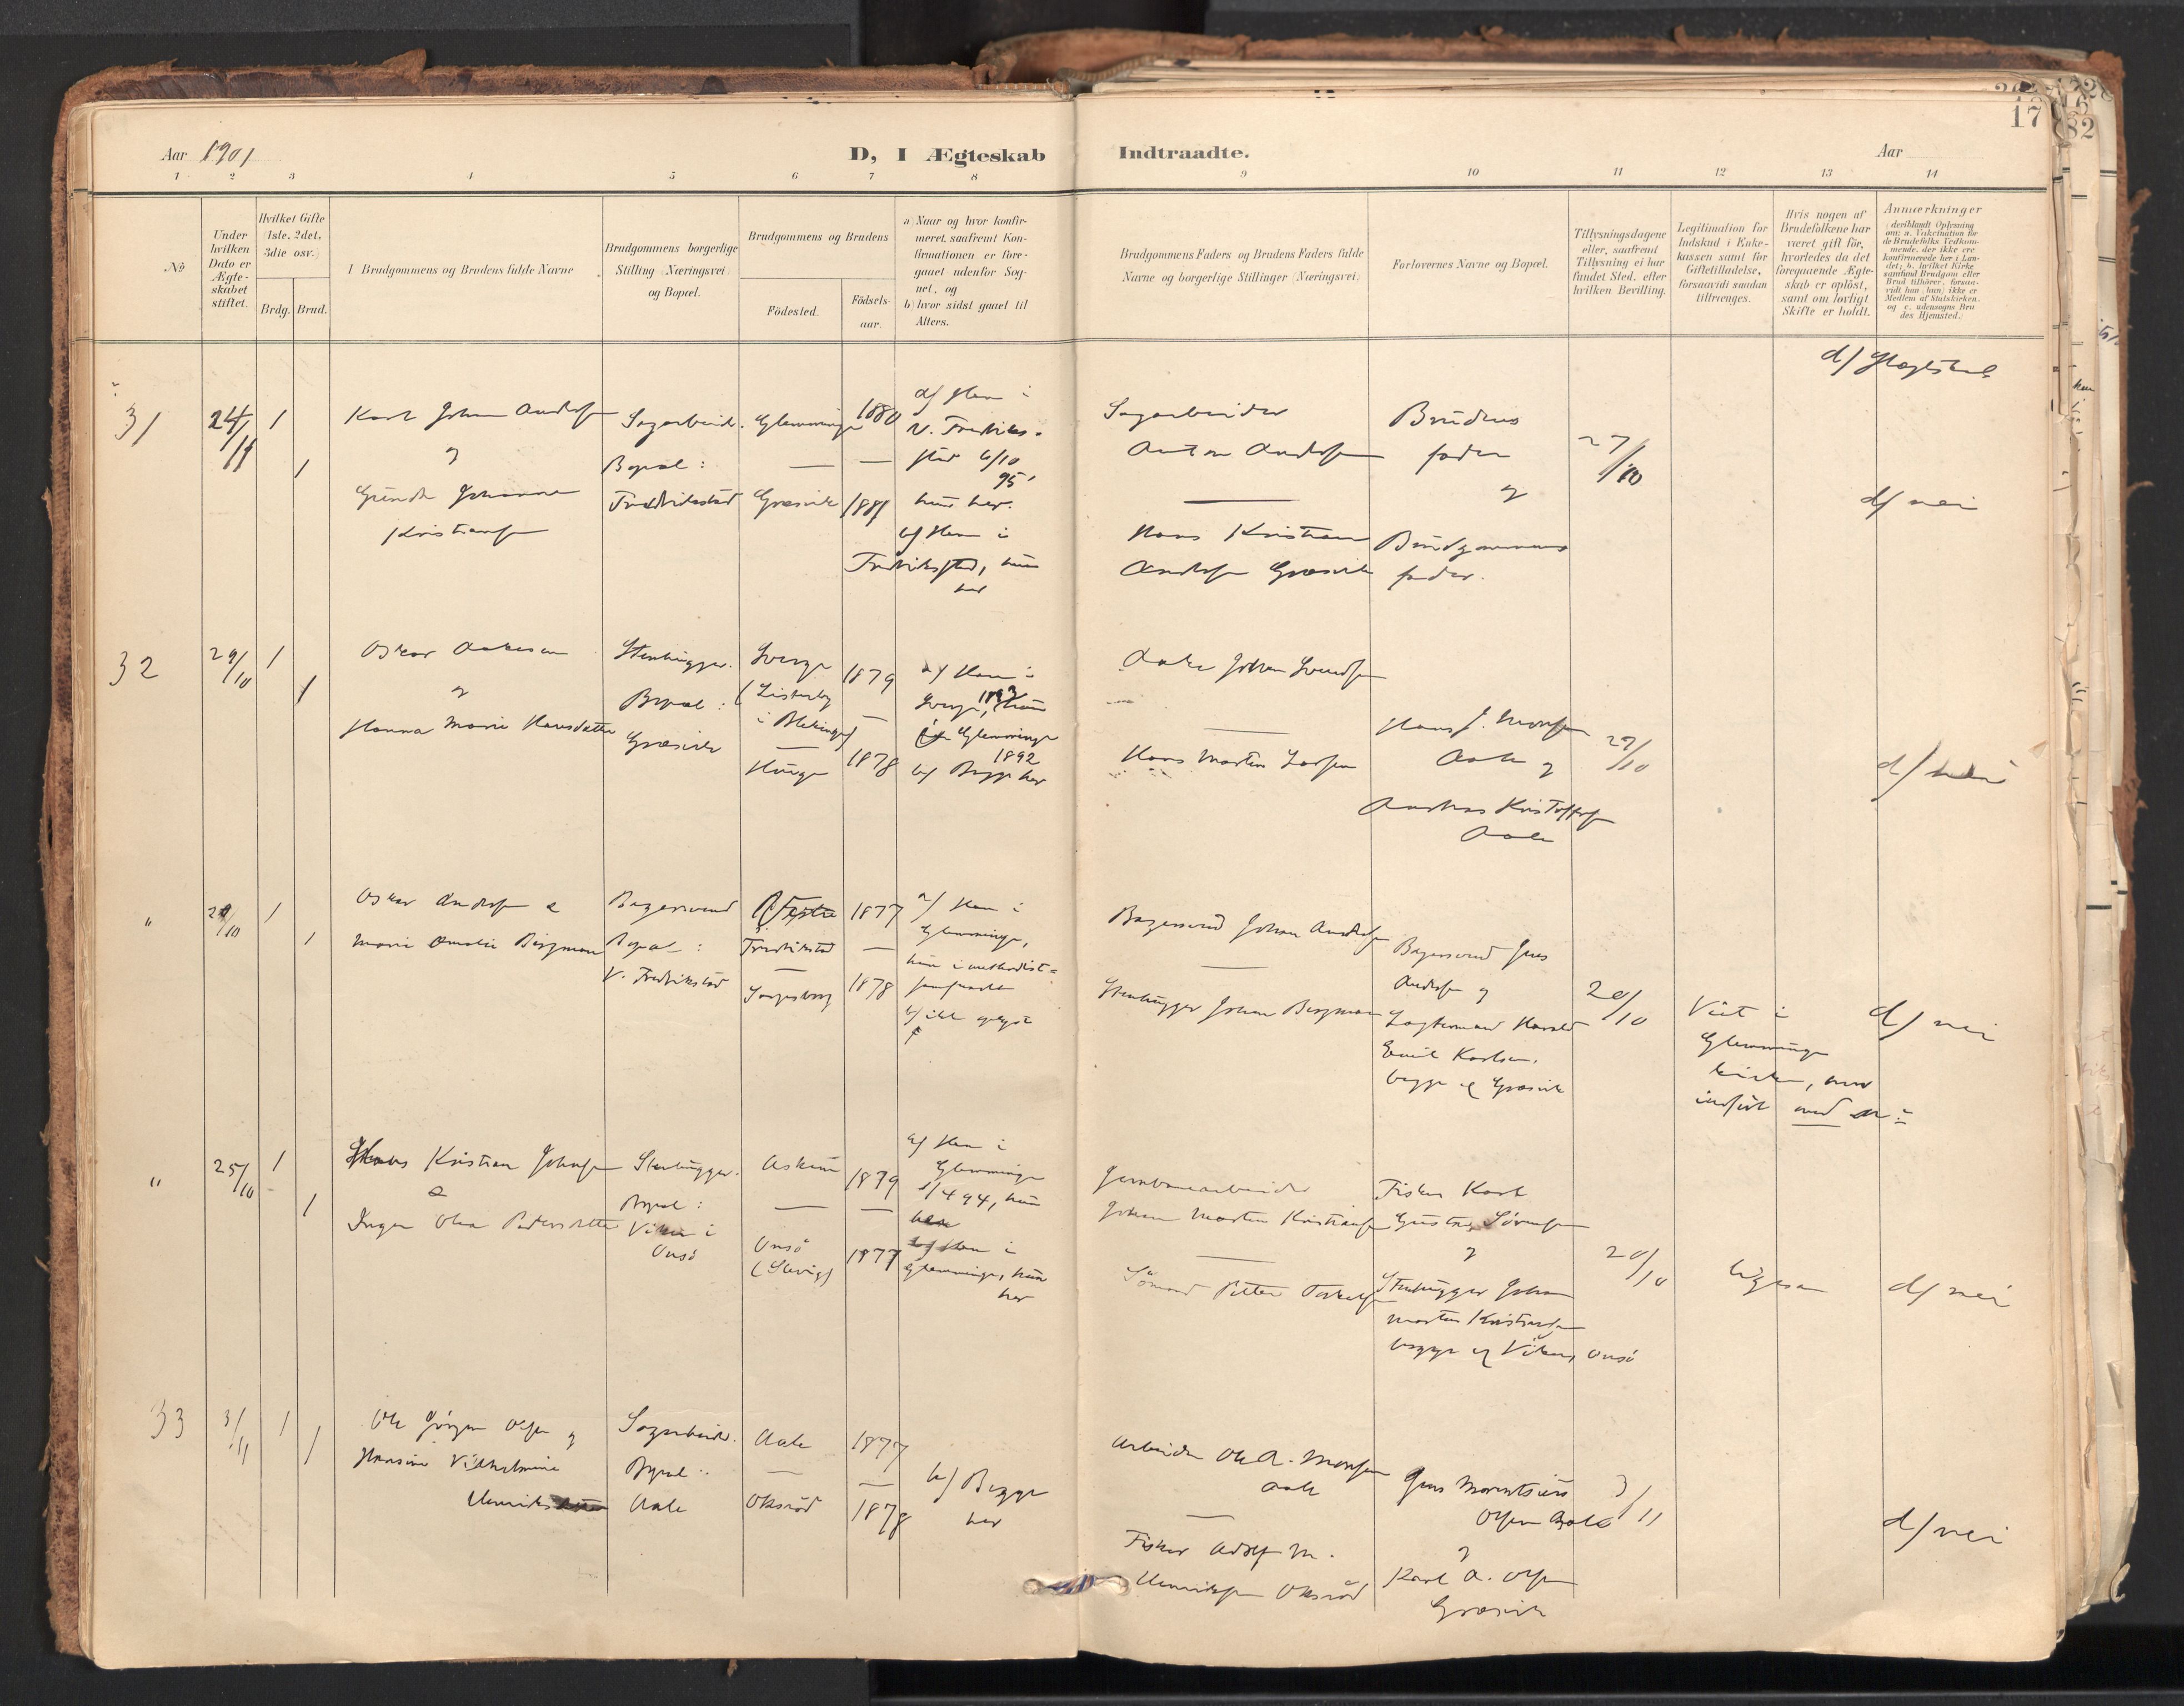 Aar 1901
D, I Ægteskab
Indtraadte.
Aar
17
1 2 3 4 5 6 7 8 9 10 11 12 13 14
No
Under hvilken Dato er Ægte-skabet stiftet.
Hvilket Gifte (1ste, 2det, 3die osv.)
Brdg. Brud.
Brudgommens og Brudens fulde Navne
Brudgommens borgerlige Stilling (Næringsvei) og Bopæl.
Brudgommens og Brudens
Fødested.
Fødsels-aar.
a) Naar og hvor konfir-
meret, saafremt Kon-
firmationen er fore-
gaaet udenfor Sog-
net, og
b) hvor sidst gaaet til
Alters.
Brudgommens Faders og Brudens Faders fulde
Navne og borgerlige Stillinger (Næringsvei)
Forlovernes Navne og Bopæl.
Tillysningsdagene
eller, saafremt
Tillysning ei har
fundet Sted, efter
hvilken Bevilling.
Legitimation for
Indskud i Enke-
kassen samt for
Giftetilladelse,
forsaavidt saadan
tiltrænges.
Hvis nogen af
Brudefolkene har
været gift før,
hvorledes da det
foregaaende Ægte-
skab er opløst,
samt om lovligt
Skifte er holdt.
Anmærkninger
(deriblandt Oplysning
om: a. Vakcination for
de Brudefolks Vedkom-
mende, der ikke ere
konfirmerede her i Lan-
det; b. hvilket Kirke-
samfund Brudgom eller
Brud tilhører, forsaa-
vidt han (hun) ikke er
Medlem af Statskirken,
og c. udensogns Bru-
des Hjemsted.)
d/ Slægtskab
31
24/11
1
1
Karl Johan Andersen
og
Gunda Johanne
Kristiansen
Sagarbeider.
Bopæl:
Fredrikstad
Glemminge
Græsvik
1880
1881
a/ Han i
V. Fredrik-
stad 6/10
95,
hun her.
b/ Han i
Fredrikstad, hun
her
Sagarbeider
Anton Andersen
Hans Kristian
Andersen Græsvik
Brudens
fader
og
Brudgommens
fader.
27/10
d/ nei
32
29/10
1
1
Oskar Aakesen
og
Hanna Marie Hansdatter
Stenhugger.
Bopæl:
Græsvik
Sverge
(Listerby
i Blekinge)
Hunge
1879
1878
a/ Han i
Sverge, 1893 hun
i Glemminge
1892
b/ Begge her
Aake Johan Svendsen
Hans Martin Larsen
Hans J. Monsen
Aale og
Andreas Kristoffersen
Aale
29/10
d/ nei
"
20/10
1
1
Oskar Andersen &
Marie Amalie Bergman
Bagersvend
Bopæl:
V. Fredrikstad
Fredrikstad
Sarpsborg
1877
1878
a/ Han i
Glemminge,
hun i methodist-
samfundet
b/ ikke
Bagersvend Johan Andersen
Stenhugger Johan Bergman
Bagersvend Jens
Andersen og
Harald
Emil Karlsen.
begge af Græsvik
20/10
Viet i
Glemminge
kirke, men
indført
d/ nei
"
25/10
1
1
Hans Kristian Johnsen
&
Inga Olea Pedersdatter
Stenhugger.
Bopæl:
Viker i
Onsø
Askim
Onsø
(Slevig)
1879
1877
a/ Han i
Glemminge
1/4 94, hun
her
b/ Han i
Glemminge, hun
her
Jernbanearbeider
Johan Martin Kristiansen
Sömand Petter
Fisker Karl
Gustav Sörensen
og
Stenhugger Johan
Martin Kristiansen
begge af Viker, Onsö
20/10
ligesaa
d/ nei
33
3/11
1
1
Ole Jörgen Olsen og
Hansine Vilhelmine
Henriksen
Sagarbeider.
Bopæl:
Aale
Aale
Oksröd
1877
1878
b/ Begge
her
Arbeider Ole A. Monsen
Aale
Fisker Adolf M.
Henriksen Oksröd
Jens Marentsius
Olsen Aale
og
Karl A. Olsen
Græsvik
3/11
d/ nei